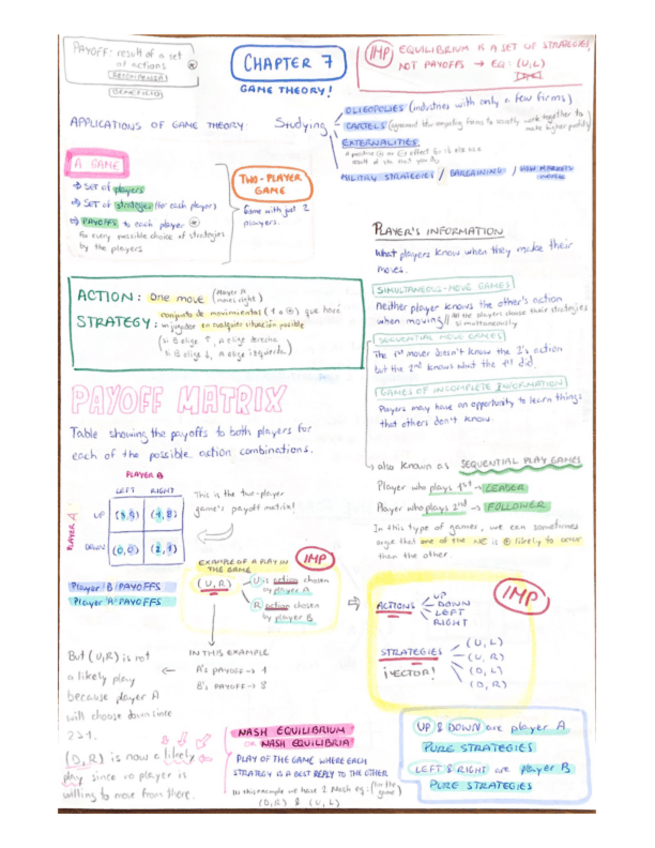 PAYOFF: result of a set
of actions
RECOMPENSA
BENEFICIO
CHAPTER 7
GAME THEORY!
IMP
EQUILIBRIUM IS A SET OF STRATEGIES,
NOT PAYOFFS → EQ: (U,L)
APPLICATIONS OF GAME THEORY: Studying
OLIGOPOLIES (industries with only a few firms)
CARTELS (agreement btw competing firms to secretly work together to
make higher profits)
EXTERNALITIES
MILITARY STRATEGIES / BARGAINING /
A GAME
⇒ SET OF players
⇒ SET OF strategies (for each player)
⇒ PAYOFFS to each player
for every possible choice of strategies
by the players
TWO-PLAYER
GAME
Game with just 2
players.
PLAYER'S INFORMATION
What players know when they make their
moves.
SIMULTANEOUS-MOVE GAMES
Neither player knows the other's action
when moving // All the players choose their strategies
simultaneously
SEQUENTIAL MOVE GAMES
The 1st mover doesn't know the 2's action
but the 2nd knows what the 1st did.
GAMES OF INCOMPLETE INFORMATION
Players may have an opportunity to learn things
that others don't know.
ACTION: One move (player A
moves right)
STRATEGY: conjunto de movimientos (1 o ⊕) que hará
un jugador en cualquier situación posible
(si B elige ↑, A elige derecha
si B elige ↓, A elige izquierda)
PAYOFF MATRIX
Table showing the payoffs to both players for
each of the possible action combinations.
PLAYER B
LEFT RIGHT
PLAYER A
UP (1,8)
DOWN (0,0) (2,1)
This is the two-player
game's payoff matrix!
Player B PAYOFFS
Player A PAYOFFS
EXAMPLE OF A PLAY IN
THE GAME
IMP
(U,R)
U is action chosen
by player A
R action chosen
by player B
IN THIS EXAMPLE
A's PAYOFF → 1
B's PAYOFF → 8
But (U,R) is not
a likely play
because player A
will choose down since
2>1.
(D,R) is now a likely
play since no player is
willing to move from there.
also known as SEQUENTIAL PLAY GAMES
Player who plays 1st → LEADER
Player who plays 2nd → FOLLOWER
In this type of games, we can sometimes
argue that one of the NE is ⊕ likely to occur
than the other.
IMP
ACTIONS
UP
DOWN
LEFT
RIGHT
STRATEGIES
¡VECTOR!
(U,L)
(U,R)
(D,L)
(D,R)
NASH EQUILIBRIUM
OR NASH EQUILIBRIA
PLAY OF THE GAME WHERE EACH
STRATEGY IS A BEST REPLY TO THE OTHER
In this example we have 2 Nash eq: (for the
game)
(D,R) & (U,L)
UP & DOWN are player A
PURE STRATEGIES
LEFT & RIGHT are player B
PURE STRATEGIES